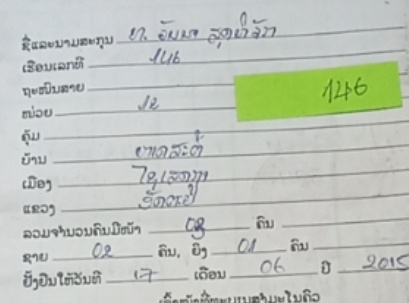 ຊື່ແລະນາມສະກຸນ ທ. ອັມພາ
ເຮືອນເລກທີ 146
ຖະໜົນສາຍ
146
ໜ່ວຍ 12
ຄຸ້ມ
ບ້ານ
ເມືອງ ໄຊເສດຖາ
ແຂວງ ອັດຕະປື
ລວມຈຳນວນຄົນມີໜ້າ 03 ຄົນ
ຊາຍ 02 ຄົນ, ຍິງ 01 ຄົນ
ຢັ້ງຢືນໃຫ້ວັນທີ 17 ເດືອນ 06 ປີ 2015